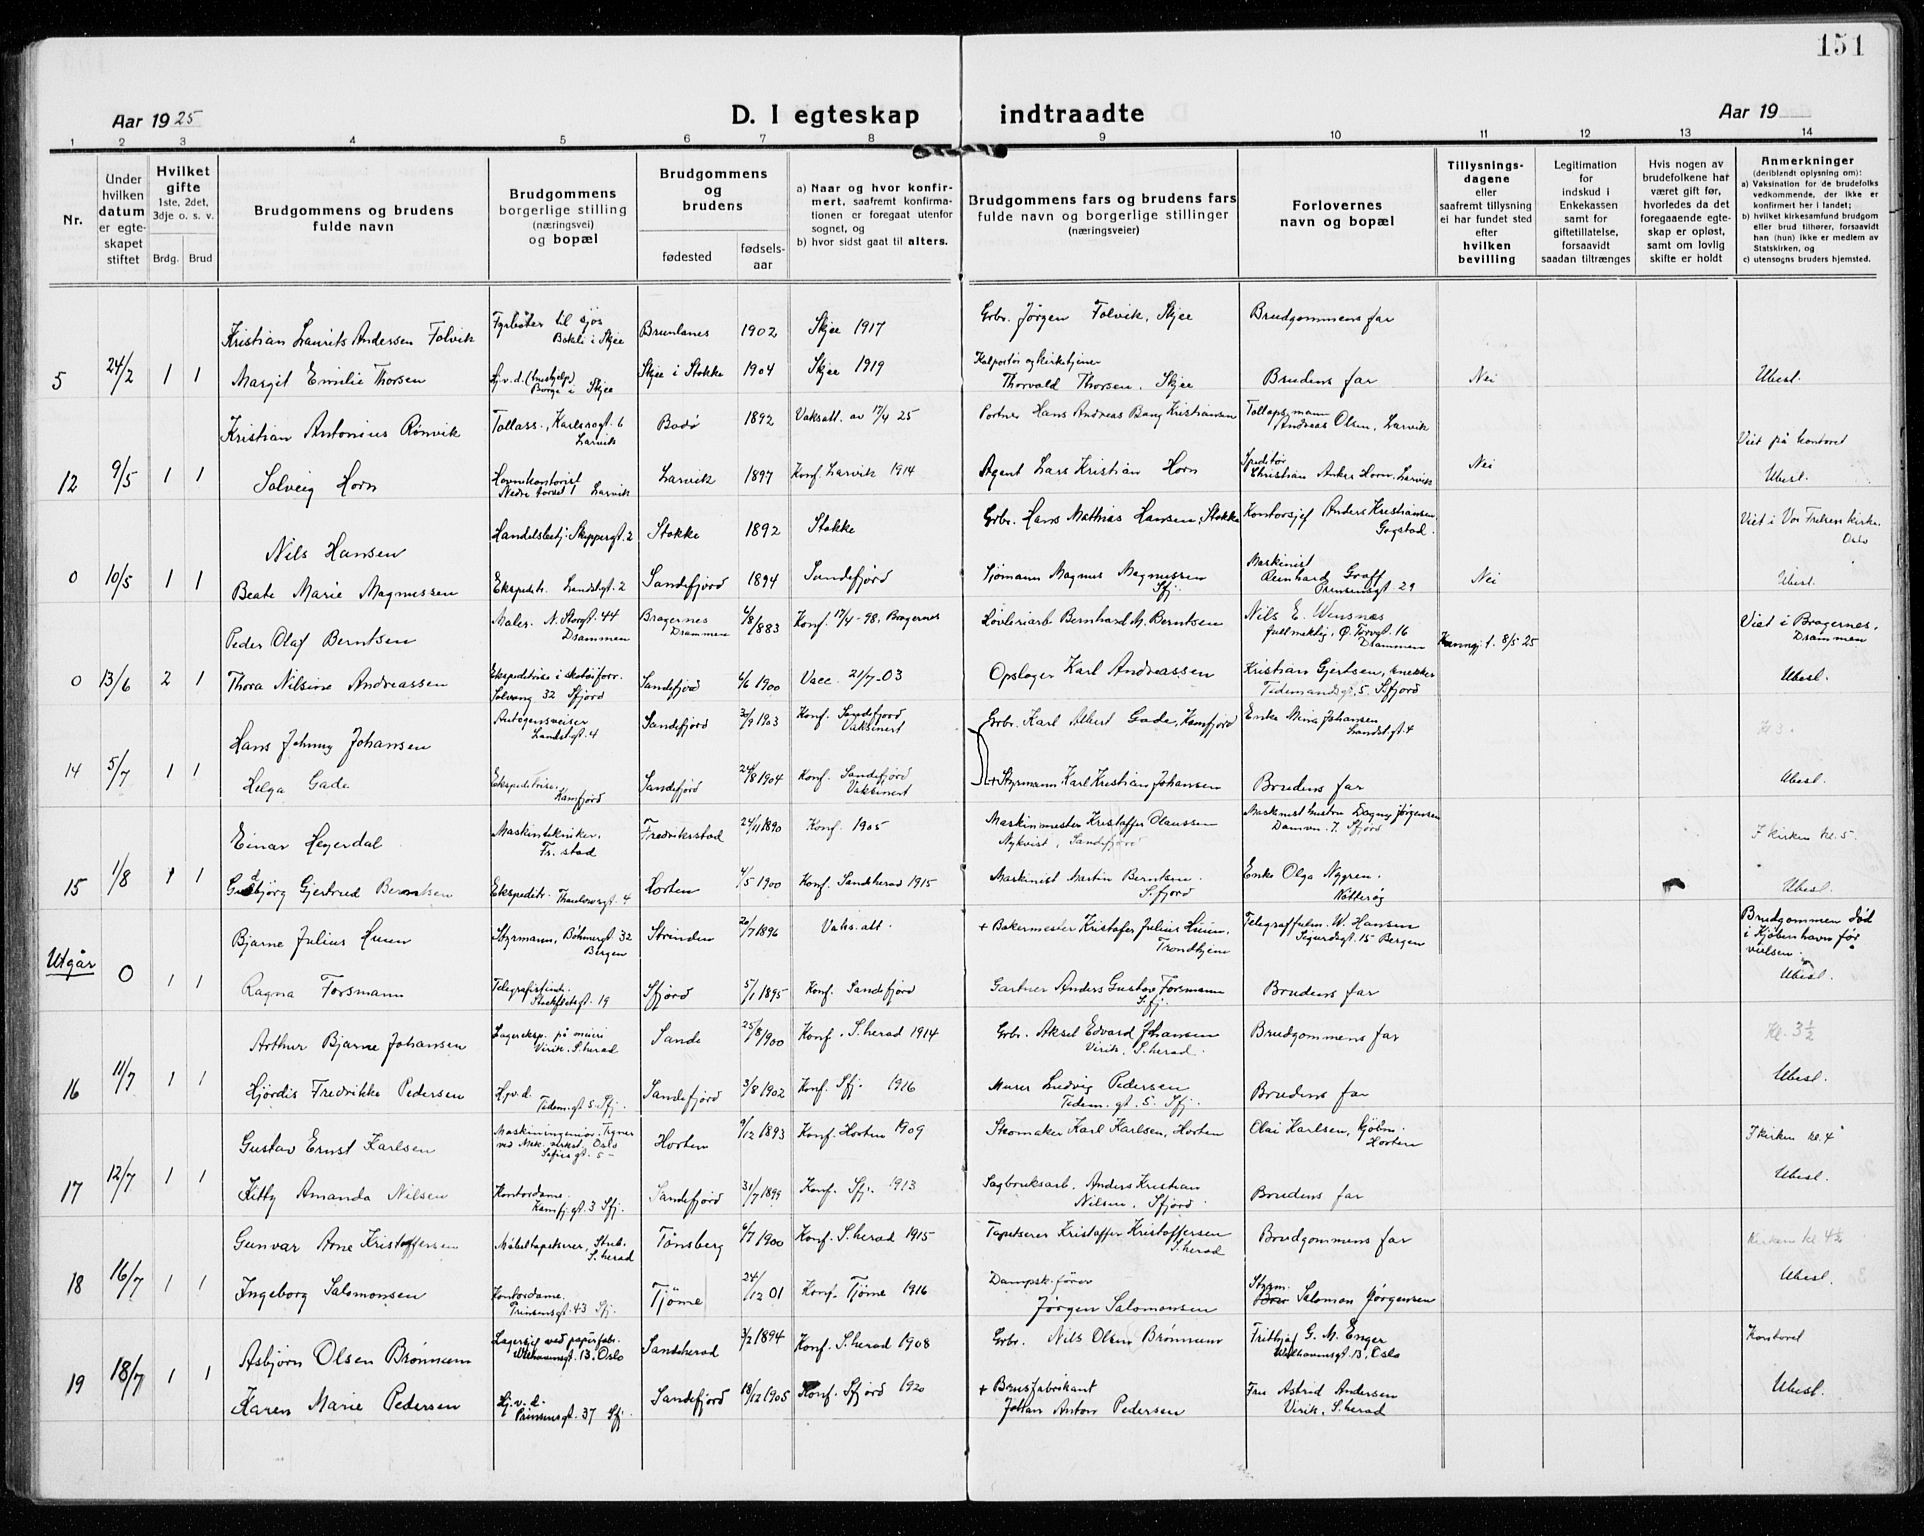 151
Aar 1925 D. I egteskap indtraadte Aar 19
1 2 3 4 5 6 7 8 9 10 11 12 13 14
Nr.
Under hvilken datum er egteskapet stiftet
Hvilket gifte 1ste, 2det, 3dje o. s. v.
Brdg. Brud
Brudgommens og brudens fulde navn
Brudgommens borgerlige stilling (næringsvei) og bopæl
Brudgommens og brudens
fødested fødselsaar
a) Naar og hvor konfirmert, saafremt konfirmationen er foregaat utenfor sognet, og
b) hvor sidst gaat til alters.
Brudgommens fars og brudens fars fulde navn og borgerlige stillinger (næringsveier)
Forlovernes navn og bopæl
Tillysningsdagene eller saafremt tillysning ei har fundet sted efter hvilken bevilling
Legitimation for indskud i Enkekassen samt for giftetillatelse, forsaavidt saadan tiltrænges
Hvis nogen av brudefolkene har været gift før, hvorledes da det foregaaende egteskap er opløst, samt om lovlig skifte er holdt
Anmerkninger (deriblandt oplysning om):
a) Vaksination for de brudefolks vedkommende, der ikke er konfirmert her i landet;
b) hvilket kirkesamfund brudgom eller brud tilhører, forsaavidt han (hun) ikke er medlem av Statskirken, og
c) utensogns bruders hjemsted.
Kristian Laurits Andersen Folvik Fyrbøter til sjøs Bakli i Skjee Brunlanes 1902 Skjee 1917 Grbr. Jørgen Folvik, Skjee Brudgommens far
5 24/2 1 1 Margit Emilie Thorsen Hj.v.d. (hushjelp) Borge i Skjee Skjee i Stokke 1904 Skjee 1919 Kolportør og kirketjener Thorvald Thorsen, Skjee Brudens far Nei Ubesl.
Kristian Antonius Rønvik Tollass., Karlsrogt. 6 Larvik Bodø 1892 Vaksatt. av 17/4 25 Portner Hans Andreas Bang Kristiansen Tollopsmann Andreas Olsen, Larvik Viet på kontoret
12 9/5 1 1 Solveig Horn Havnekontorist Nedre torset 1 Larvik Larvik 1897 Konf. Larvik 1914 Agent Lars Kristian Horn Speditør Christian Anker Horn, Larvik Nei Ubesl.
Nils Hansen Handelsbetj. Skippergt. 2 Stokke 1892 Stokke Grbr. Hans Mathias Hansen, Stokke Kontorsjef Anders Kristiansen, Gogstad. Viet i Vor Frelsers kirke. Oslo
0 10/5 1 1 Beate Marie Magnussen Ekspeditr. Landstgt. 2 Sandefjord 1894 Sandefjord Sjømann Magnus Magnussen Sfj. Maskinist Reinhard Graff Prinsensgt 29 Nei Ubesl.
Peder Olaf Berntsen Maler. N. Storgt. 44 Drammen Bragernes Drammen 6/8 1883 Konf. 17/4-98, Bragernes Løvleriarb Bernhard M. Berntsen Nils E. Wensnæs fullmektig, Ø. Torvgt. 16 Drammen Kunngj. 1. 8/5 25 Viet i Bragernes, Drammen
0 13/6 2 1 Thora Nilsine Andreassen Ekspeditrise i skotøiforr. Solvang 32 Sfjord Sandefjord 6/6 1900 Vacc. 21/7-03 Opsloger Karl Andreassen Kristian Gjertsen, snekker Tidemandsgt. 5. Sfjord Ubesl.
Hans Johnny Johansen Autogensveiser Landstgt. 4 Sandefjord 30/9 1903 Konf. Sandefjord Vaksinert Grbr. Karl Albert Gade, Kamfjord Enke Mina Johansen Landstgt 4 Kl 3.
14 5/7 1 1 Helga Gade Ekspeditrise. Kamfjord Sandefjord 24/8 1904 Konf. Sandefjord Vaksinert + Styrmann Karl Kristian Johansen Brudens far Ubesl.
Einar Heyerdal Maskintekniker, Fr. stad Fredrikstad 24/11 1890 Konf. 1905 Maskinmester Kristoffer Olaussen Nykvist, Sandefjord Maskinist hustru Dagny Jørgensen Damvn. 7. Sfjord I kirken kl. 5.
15 1/8 1 1 Gudbjørg Gjertrud Berntsen Ekspeditr. Thaulowsgt. 4 Horten 4/5 1900 Konf. Sandeherad 1915 Maskinist Martin Berntsen. S.fjord Enke Olga Nygren. Nøtterøy Ubesl.
Utgår Bjarne Julius Huun Styrmann, Bøhmergt 32 Bergen Strinden 20/7 1896 Vaks. att. + Bakermester Kristofer Julius Huun, Trondhjem Telegraffulm. W. Hansen Sigurdsgt. 15 Bergen Brudgommen død i Kjøbenhavn før vielsen.
0 1 1 Ragna Forsmann Telegrafistinde. Stockfletsgt. 19 Sfjord 5/1 1895 Konf. Sandefjord Gartner Anders Gustav Forsmann Sfj. Brudens far Ubesl.
Arthur Bjarne Johansen Lagereksp. på meieri Virik. S.herad Sande 25/8 1900 Konf. S.herad 1914 Grbr. Aksel Edvard Johansen Virik, S.herad. Brudgommens far Kl. 3½
16 11/7 1 1 Hjørdis Fredrikke Pedersen Hj.v.d. Tidem.gt 5. Sfj. Sandefjord 3/8 1902 Konf. Sfj. 1916 Murer Ludvig Pedersen Tidem. gt. 5. Sfj. Brudens far Ubesl.
Gustav Ernst Karlsen Maskiningeniør. Tegner ved Mek. verkst, Oslo Sofies gt. 5 Horten 9/12 1893 Konf. Horten 1909 Skomaker Karl Karlsen, Horten Olai Karlsen, kjøbm. Horten I kirken kl. 4
17 12/7 1 1 Kitty Amanda Nilsen Kontordame. Kamfj.gt. 3 Sfj. Sandefjord 31/7 1899 Konf. Sfj. 1913 Sagbruksarb. Anders Kristian Nilsen, Sfjord Brudens far Ubesl.
Gunvar Arne Kristoffersen Møbeltapetserer, Strub. S.herad Tønsberg 6/7 1900 Konf. S.herad 1915 Tapetserer Kristoffer Kristoffersen S.herad Brudgommens far Kirken kl 4½
18 16/7 1 1 Ingeborg Salomonsen Kontordame. Prinsensgt. 43 Sfj. Tjøme 24/12 01 Konf. Tjøme 1916 Dampsk. fører Jørgen Salomonsen Styrm. Salomon Jørgensen Ubesl.
Asbjørn Olsen Brønnum Lagersjef ved papirfabr. Welhavensgt. 13, Oslo Sandeherad 3/2 1894 Konf. S.herad 1908 Grbr. Nils Olsen Brønnum Frithjof G. M. Enger Welhavensgt. 13, Oslo Kontoret
19 18/7 1 1 Karen Marie Pedersen Hj.v.d. Prinsensgt. 37 Sfj. Sandefjord 18/12 1905 Konf. Sfjord 1920 + Brusfabrikant Johan Anton Pedersen Fru Astrid Andersen Virik, S.herad Ubesl.